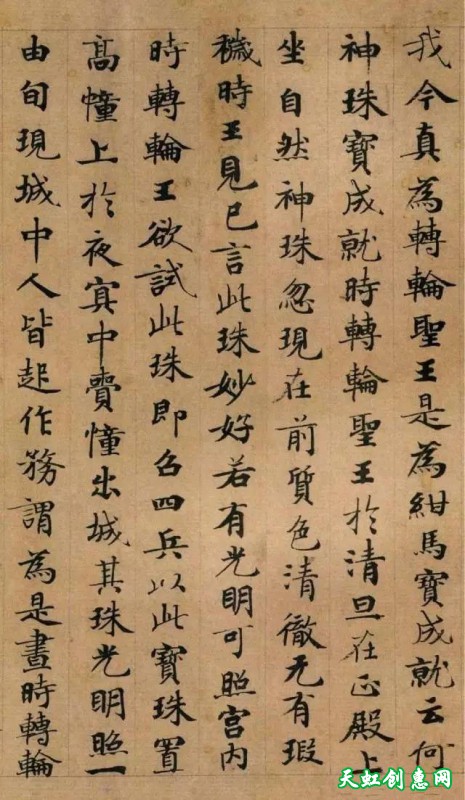 我今真為轉輪聖王是為紺馬寶成就云何
神珠寶成就時轉輪聖王於清旦在正殿上
坐自然神珠忽現在前質色清徹无有瑕
穢時王見已言此珠妙好若有光明可照宮内
時轉輪王欲試此珠即召四兵以此寶珠置
高幢上於夜冥中賷幢出城其珠光明照一
由旬現城中人皆起作務謂為是晝時轉輪
天虹创惠网